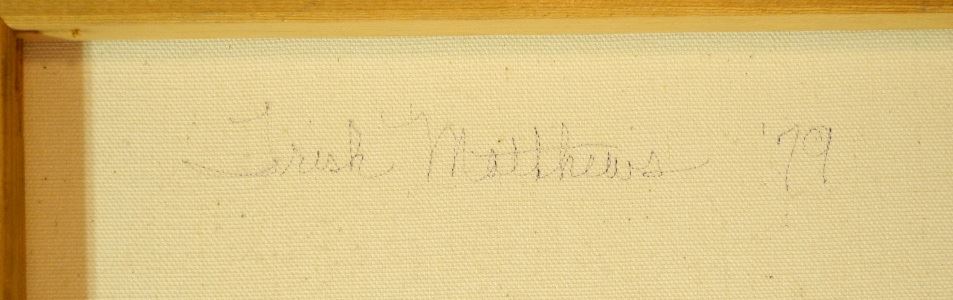 Trish Matthews '79